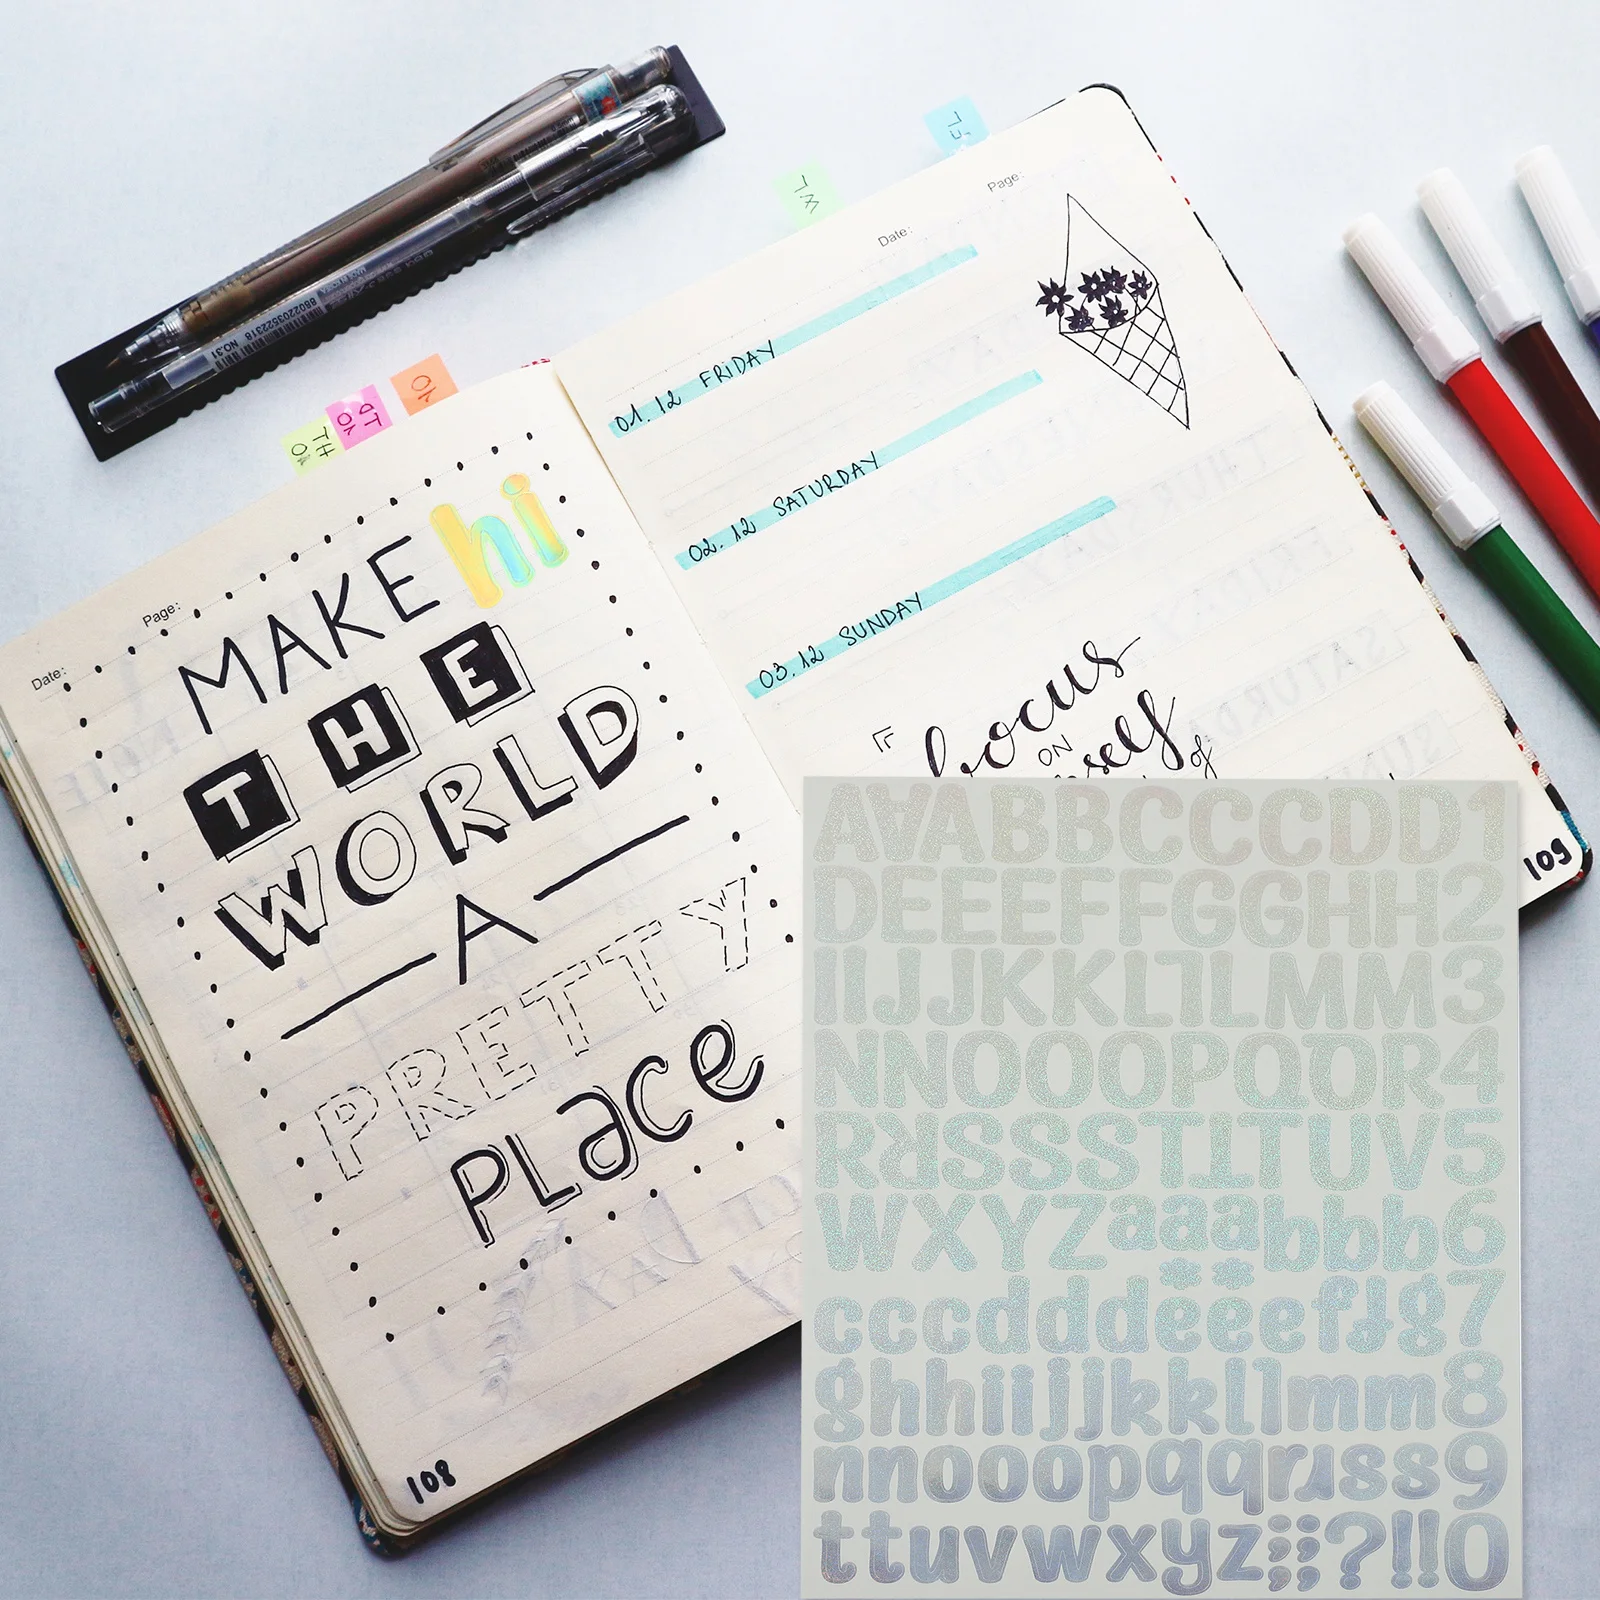 Date:
Page:
MAKE hi
THE
WORLD
A
PRETTY
PLace
108
Page:
Date:
01.12 FRIDAY
02.12 SATURDAY
03.12 SUNDAY
focus
ON
of
109
AAABBCCCDD1
DEEEFFGGHH2
IIJJKKLLLMM3
NNOOOPQQR4
RRSSSTTTUV5
WXYZaaabbb6
cccdddeeeffg7
ghhiijjkkllmm8
nnooopqqrrsss9
ttuvwxyz;;?!!0
8802203522318 NO.31